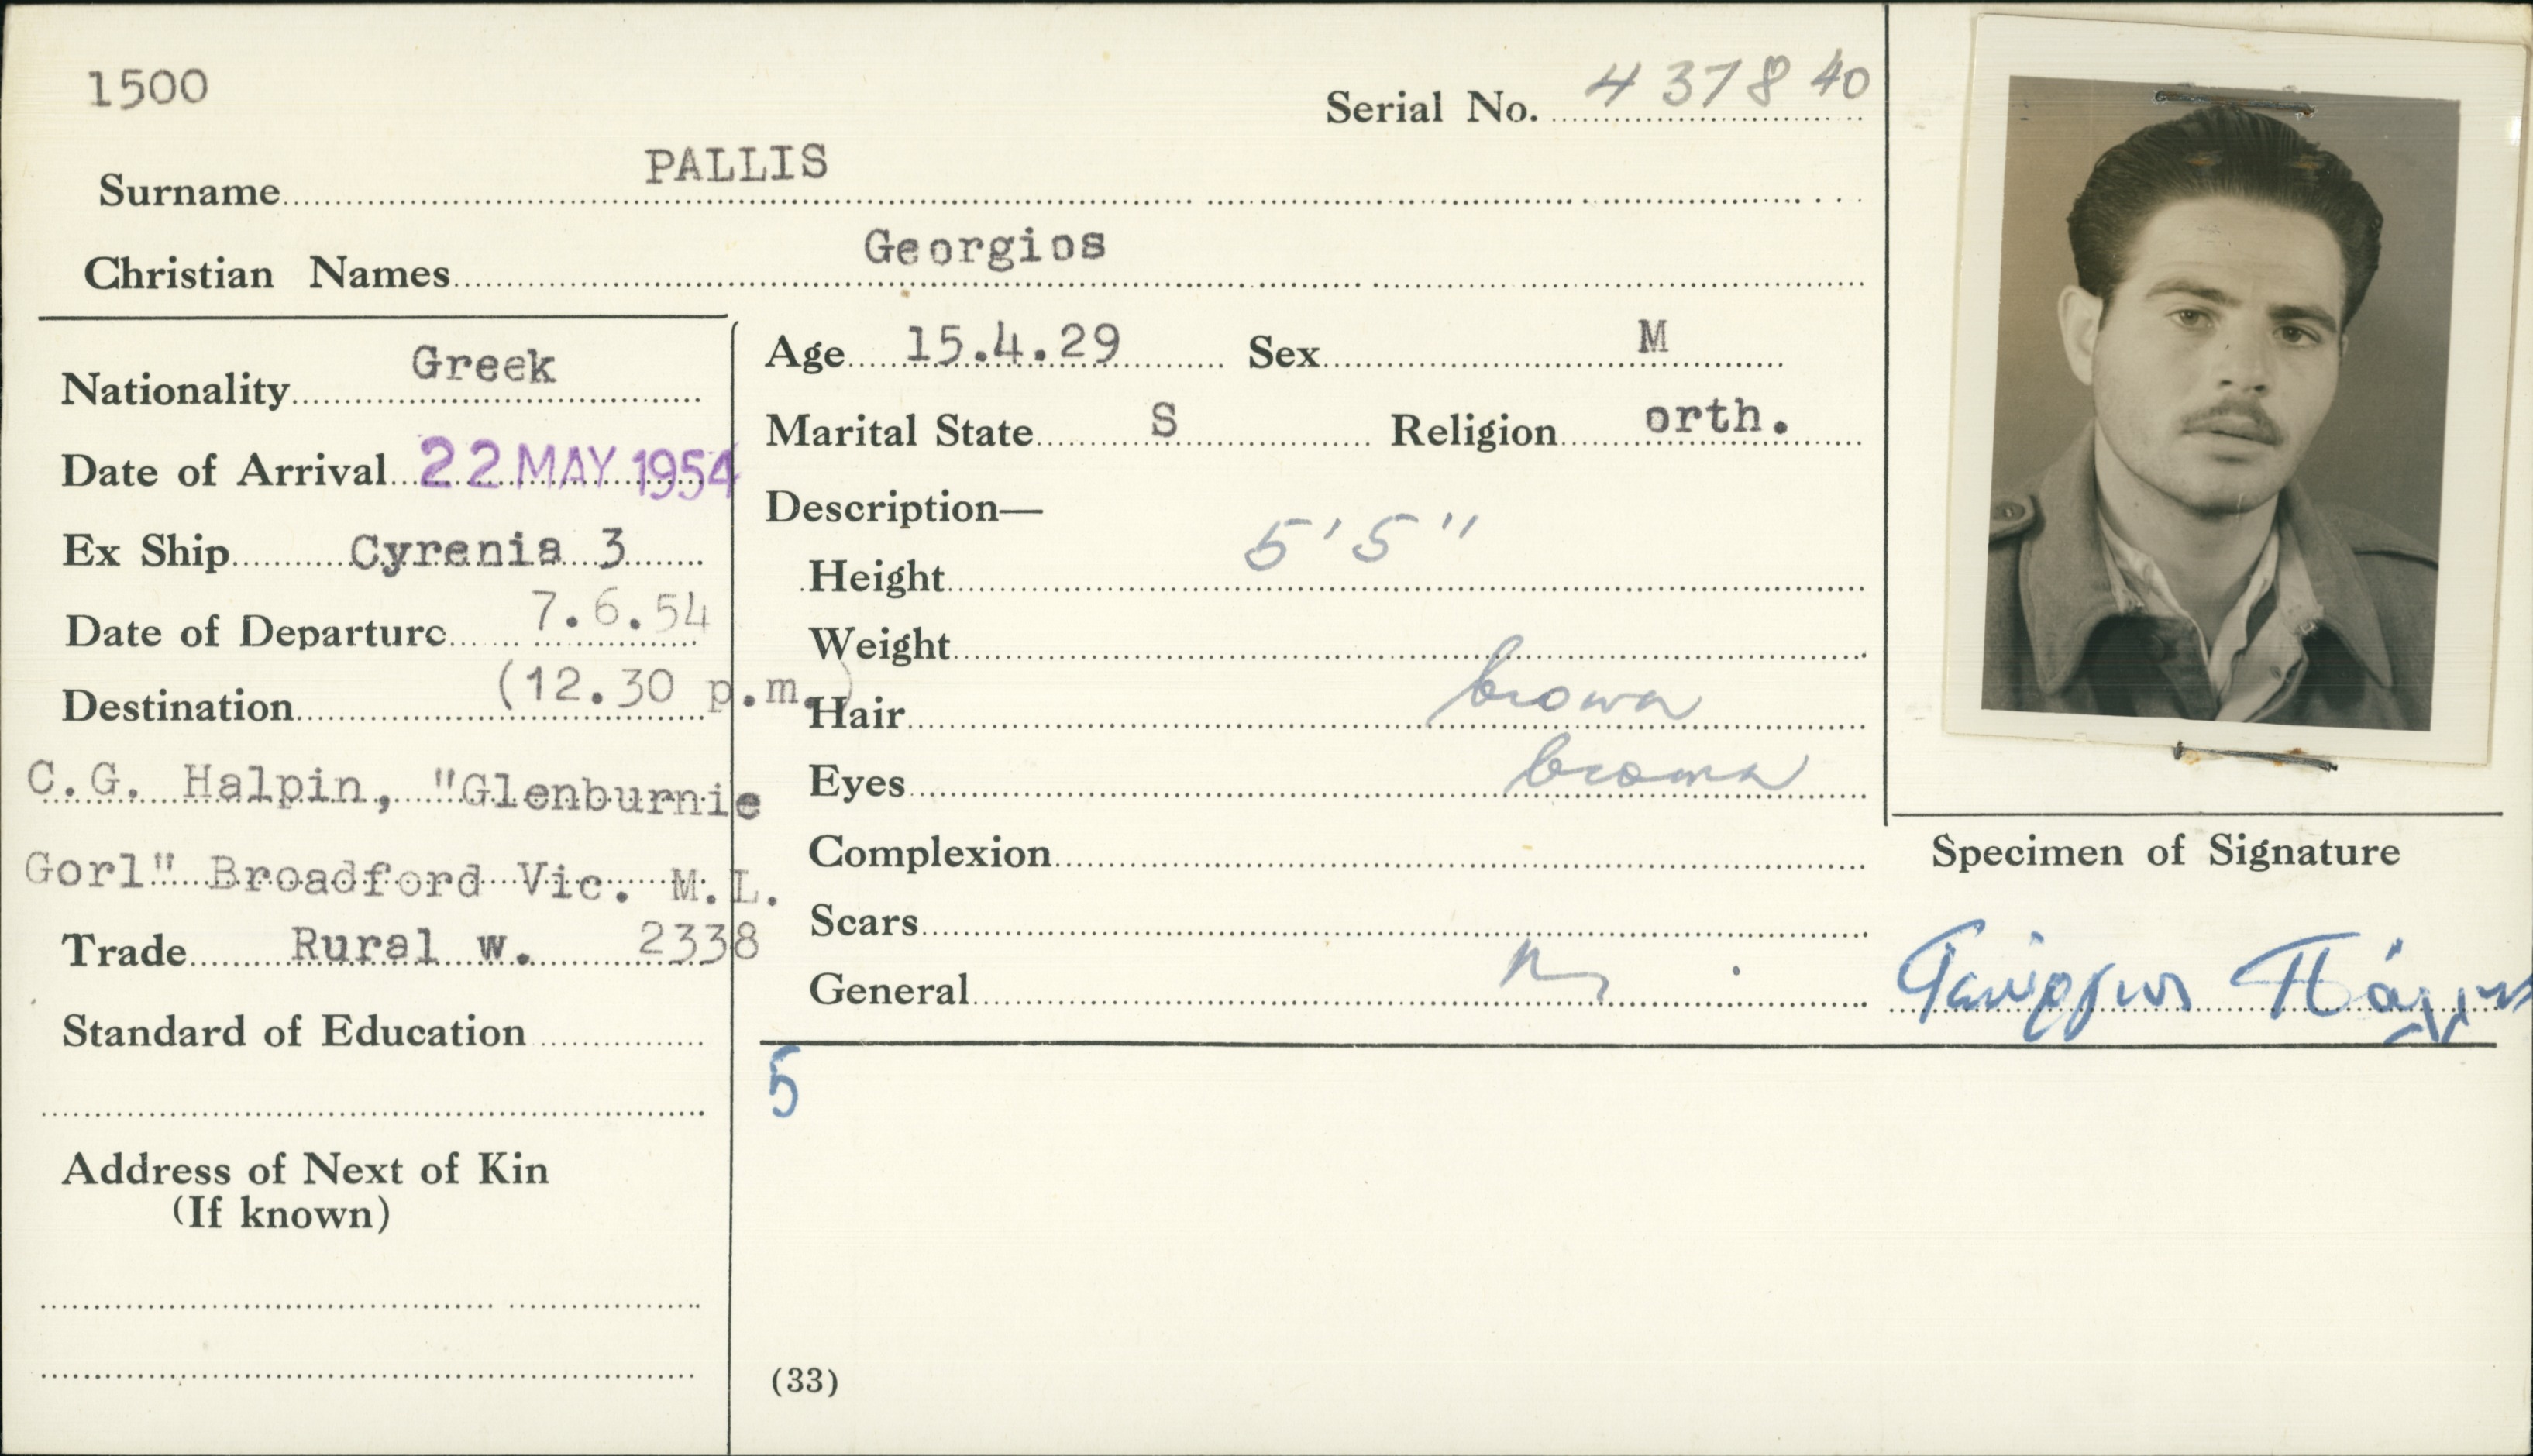 1500
Serial No. 437840
Surname PALLIS
Christian Names Georgios
Nationality Greek
Date of Arrival 22 MAY 1954
Ex Ship Cyrenia 3
Date of Departure 7.6.54
Destination (12.30 p.m.)
C.G. Halpin, "Glenburnie
Gorl" Broadford Vic. M.L.
Trade Rural w. 2338
Standard of Education
Address of Next of Kin
(If known)
Age 15.4.29 Sex M
Marital State S Religion orth.
Description—
Height 5'5"
Weight
Hair brown
Eyes brown
Complexion
Scars
General
5
(33)
Specimen of Signature
Γεώργιος Πάλλης